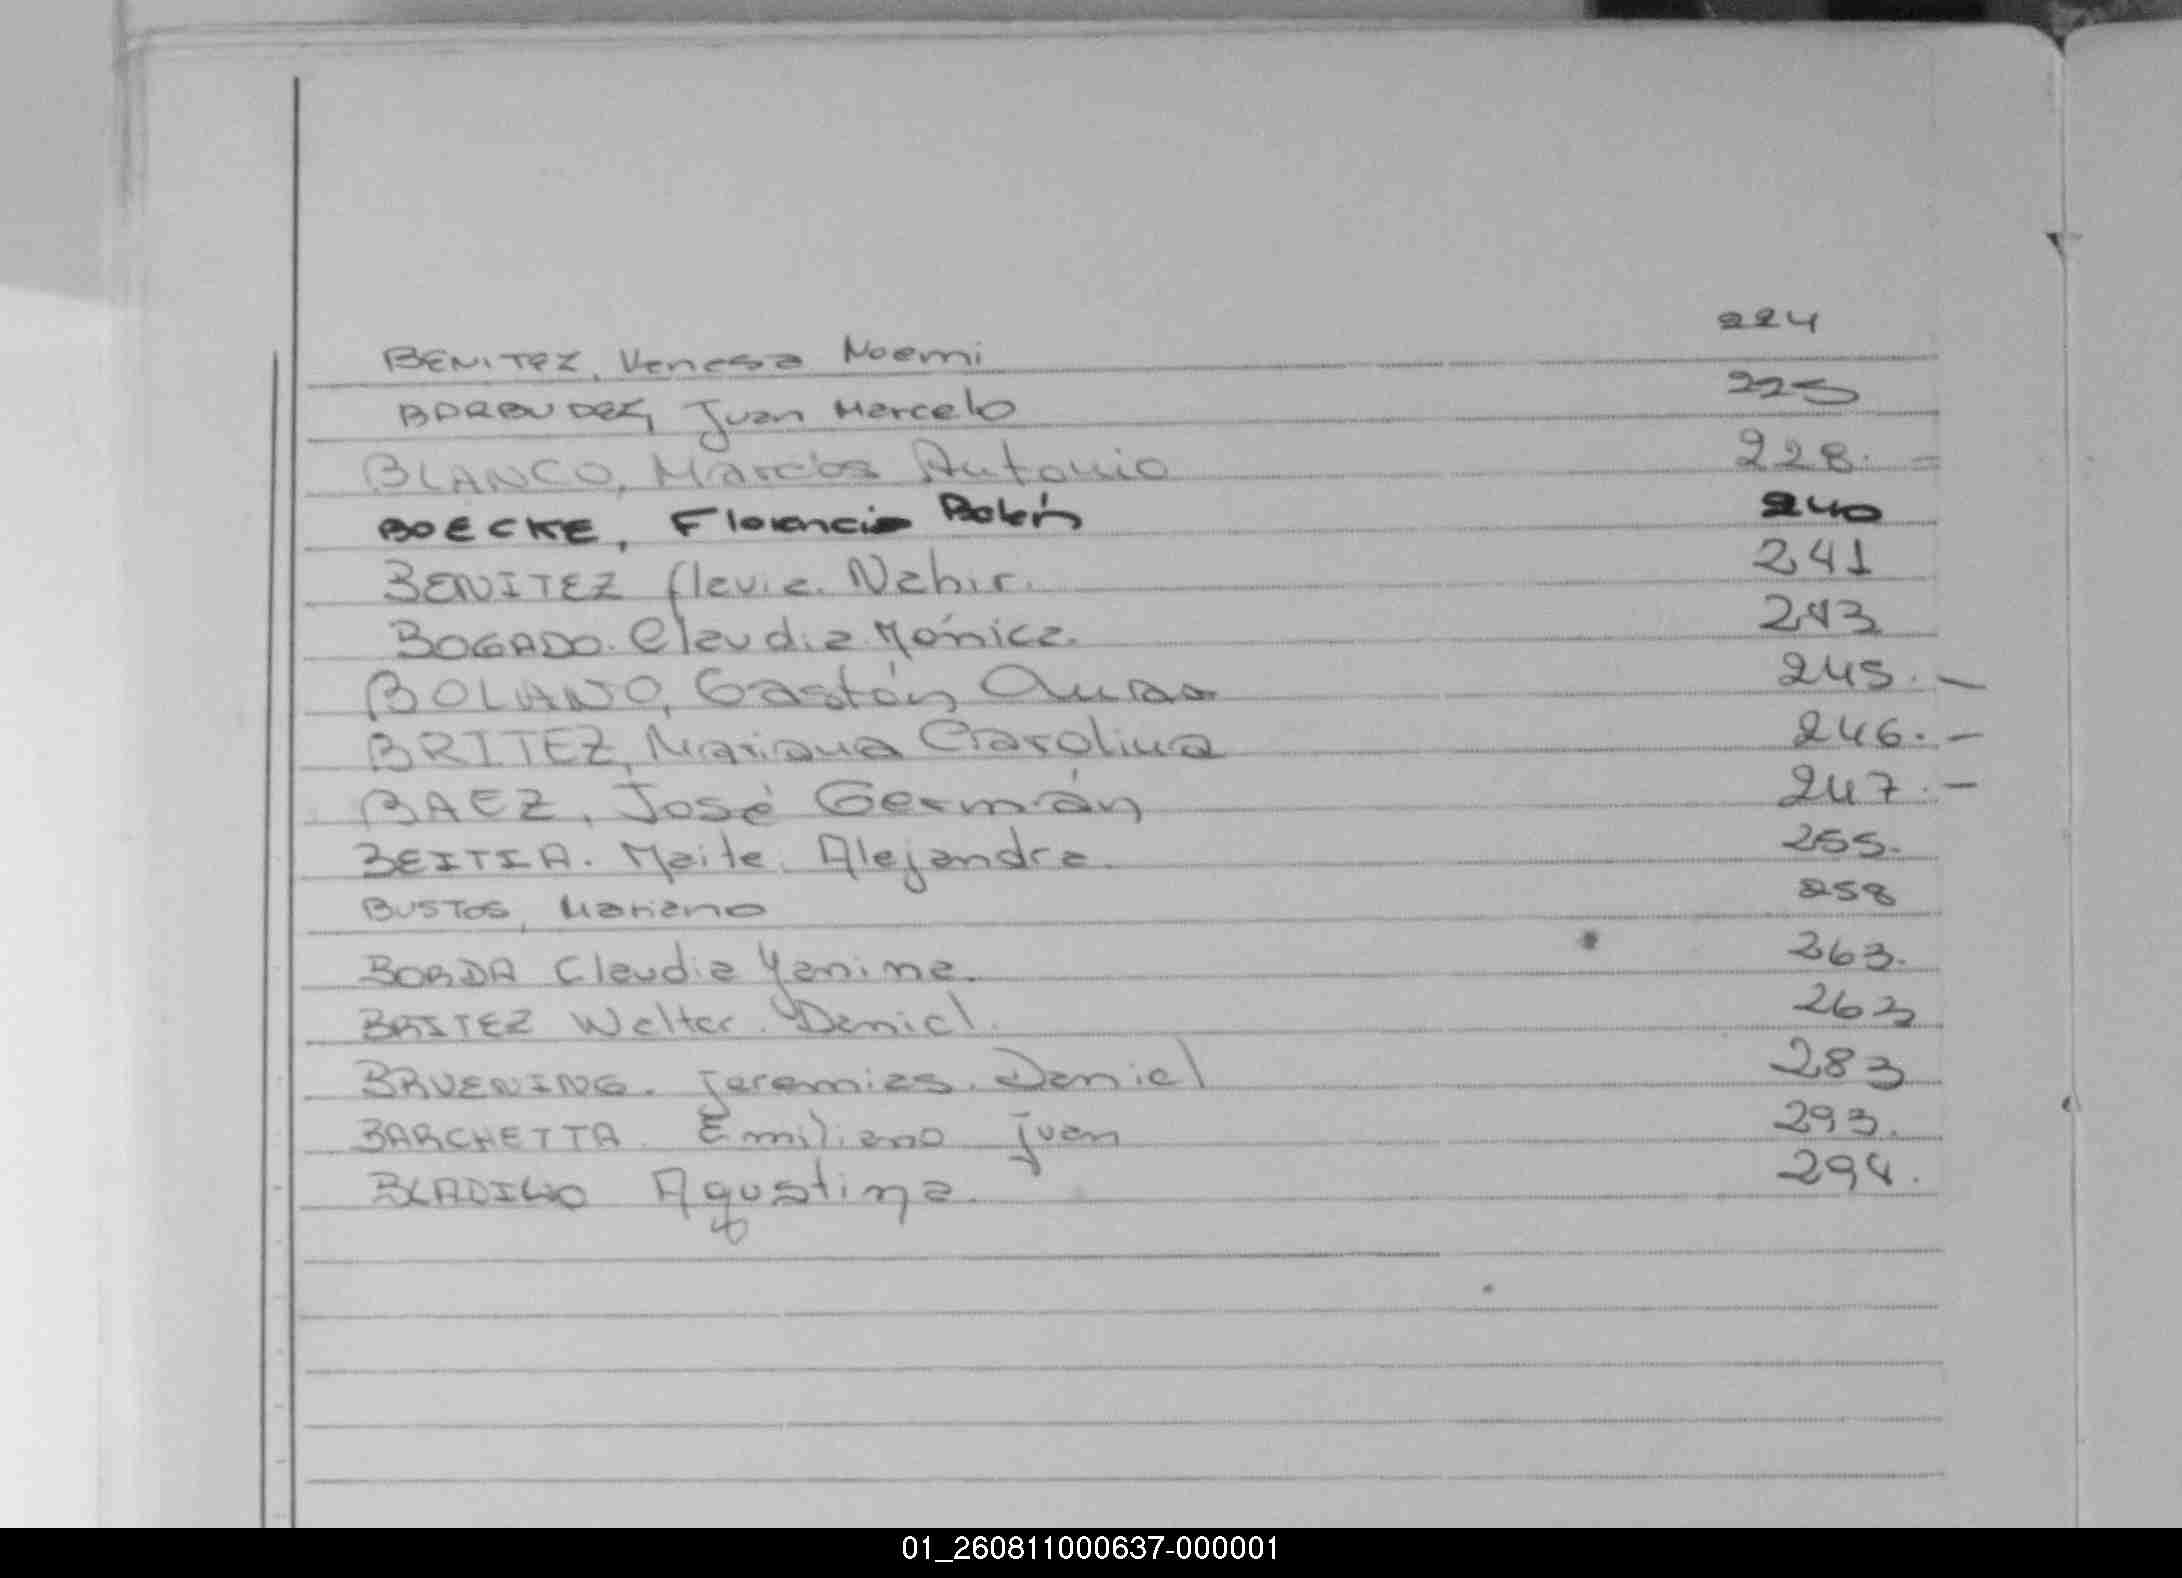 BENITEZ, Venesa Noemi 224
BARBUDEZ, Juan Marcelo 225
BLANCO, Marcos Antonio 228. -
BOECKE, Florencia Belén 240
BENITEZ flavia. Nahir. 241
BOGADO. Claudia Mónica. 243
BOLANO, Gastón 245. -
BRITEZ, Mariana Carolina 246. -
BAEZ, José Germán 247. -
BEITIA. Maite. Alejandra. 255.
BUSTOS, Mariano 258
BORDA Claudia Yanina. 263.
BRITEZ Walter. Daniel. 263
BRUENING. Jeremias. Daniel 283
BARCHETTA. Emiliano Juan 293.
Agustina. 294.
01_260811000637-000001